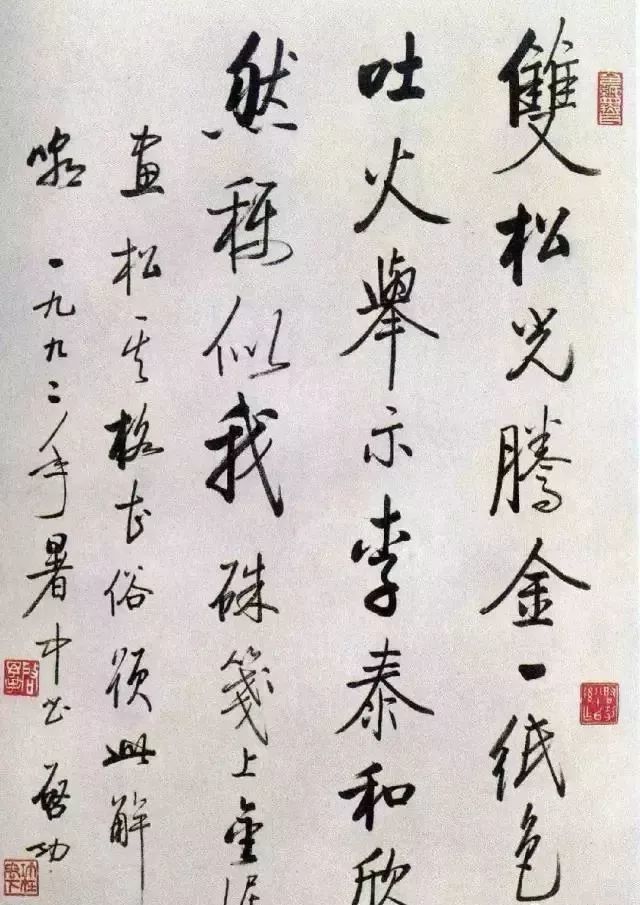 雙松光騰金一紙色
吐火舉示李泰和欣
然稱似我硃箋上金泥
畫松其格甚俗此解
嘲一九九二年暑中書啓功